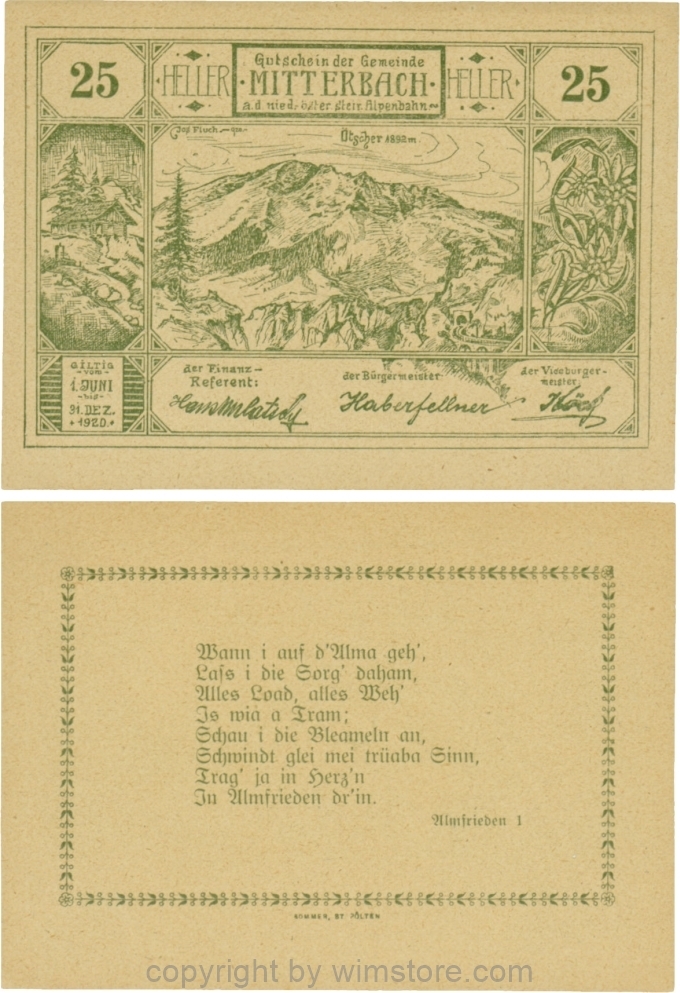 25
HELLER
Gutschein der Gemeinde
MITTERBACH
a.d. nied.-öster. steir. Alpenbahn
HELLER
25
Jos Fluch
Ötscher 1892m
GILTIG
-vom-
1. JUNI
-bis-
31. DEZ.
1920.
der Finanz-
Referent:
der Bürgermeister
Haberfellner
der Viceburger-
meister
Wann i auf d'Alma geh',
Lass i die Sorg' daham,
Alles Load, alles Weh'
Is wia a Tram;
Schau i die Bleameln an,
Schwindt glei mei trüaba Sinn,
Trag' ja in Herz'n
In Almfrieden dr'in.
Almfrieden 1
SOMMER, ST. PÖLTEN
copyright by wimstore.com